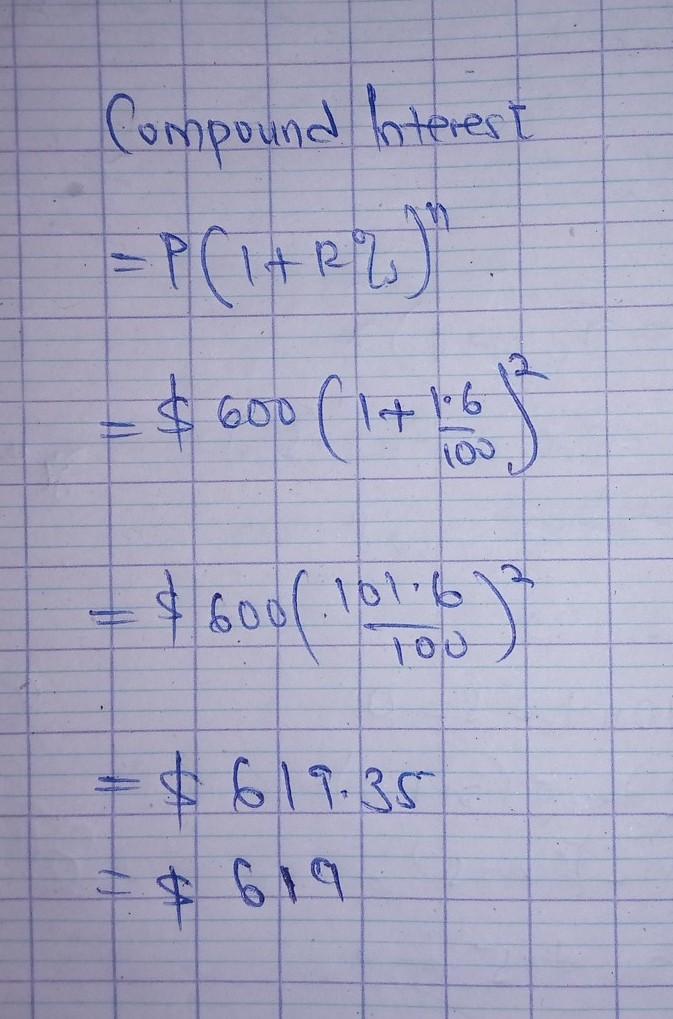 Compound Interest
= P(1 + R%)^n
= $ 600 (1 + 1.6/100)^2
= $ 600 (101.6/100)^2
= $ 619.35
= $ 619